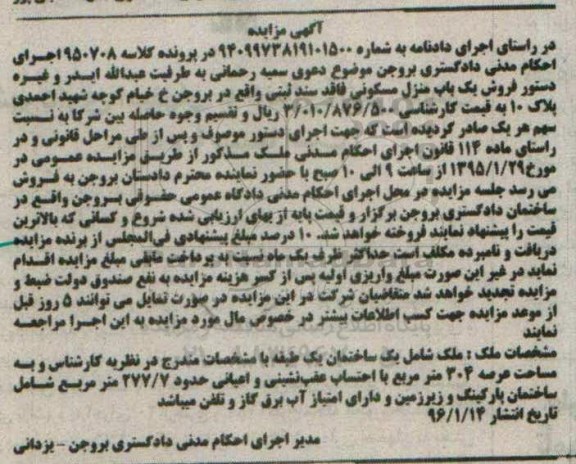 آگهی مزایده
در راستای اجرای دادنامه به شماره ۹۴۰۹۹۷۳۸۱۹۱۰۱۵۰۰ در پرونده کلاسه ۹۵۰۷۰۸ اجرای
احکام مدنی دادگستری بروجن موضوع دعوی سمیه رحمانی به طرفیت عبدالله ایدر و غیره
دستور فروش یک باب منزل مسکونی فاقد سند ثبتی واقع در بروجن خ خیام کوچه شهید احمدی
پلاک ۱۰ به قیمت کارشناسی ۳/۰۱۰/۸۷۶/۵۰۰ ریال و تقسیم وجوه حاصله بین شرکا به نسبت
سهم هر یک صادر گردیده است که جهت اجرای دستور موصوف و پس از طی مراحل قانونی و در
راستای ماده ۱۱۴ قانون اجرای احکام مدنی ملک مذکور از طریق مزایده عمومی در
مورخ ۱۳۹۵/۱/۲۹ از ساعت ۹ الی ۱۰ صبح با حضور نماینده محترم دادستان بروجن به فروش
می رسد جلسه مزایده در محل اجرای احکام مدنی دادگاه عمومی حقوقی بروجن واقع در
ساختمان دادگستری بروجن برگزار و قیمت پایه از بهای ارزیابی شده شروع و کسانی که بالاترین
قیمت را پیشنهاد نمایند فروخته خواهد شد. ۱۰ درصد مبلغ پیشنهادی فی‌المجلس از برنده مزایده
دریافت و نامبرده مکلف است حداکثر ظرف یک ماه نسبت به پرداخت مابقی مبلغ مزایده اقدام
نماید در غیر این صورت مبلغ واریزی اولیه پس از کسر هزینه مزایده به نفع صندوق دولت ضبط و
مزایده تجدید خواهد شد متقاضیان شرکت در این مزایده در صورت تمایل می توانند ۵ روز قبل
از موعد مزایده جهت کسب اطلاعات بیشتر در خصوص مال مورد مزایده به این اجرا مراجعه
نمایند
مشخصات ملک : ملک شامل یک ساختمان یک طبقه با مشخصات مندرج در نظریه کارشناس و به
مساحت عرصه ۳۰۴ متر مربع با احتساب عقب‌نشینی و اعیانی حدود ۲۷۷/۷ متر مربع شامل
ساختمان پارکینگ و زیرزمین و دارای امتیاز آب برق گاز و تلفن میباشد
تاریخ انتشار ۹۶/۱/۱۴
مدیر اجرای احکام مدنی دادگستری بروجن - یزدانی